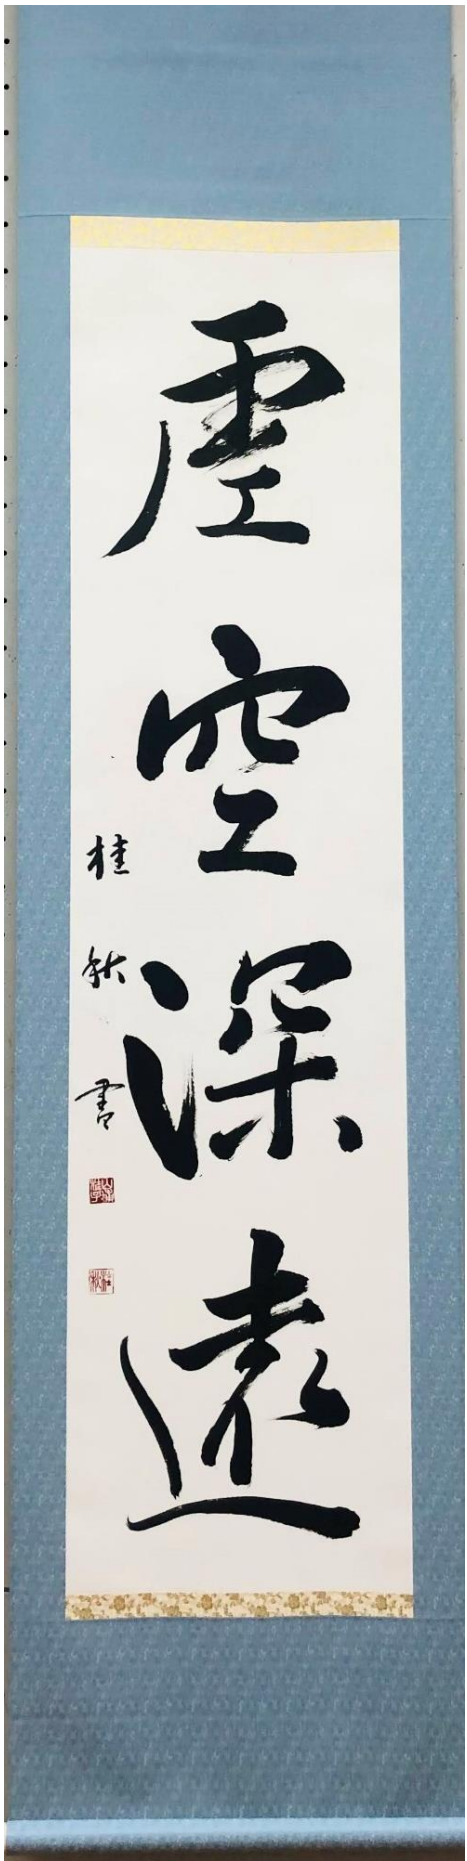 虚空深遠
桂秋書